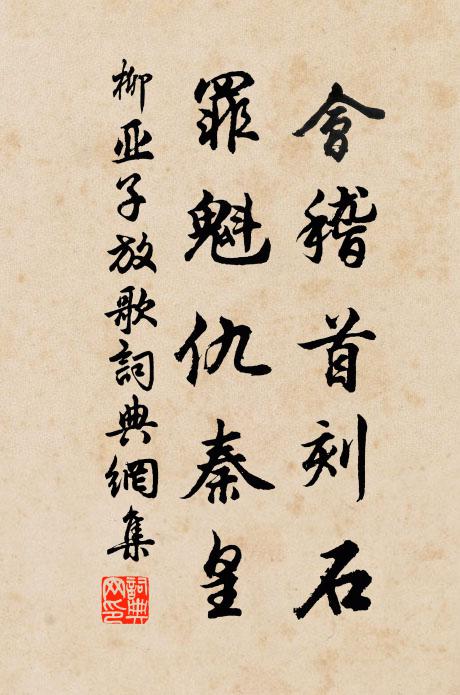 會稽首刻石
罪魁仇秦皇
柳亚子放歌詞典網集
詞典網印